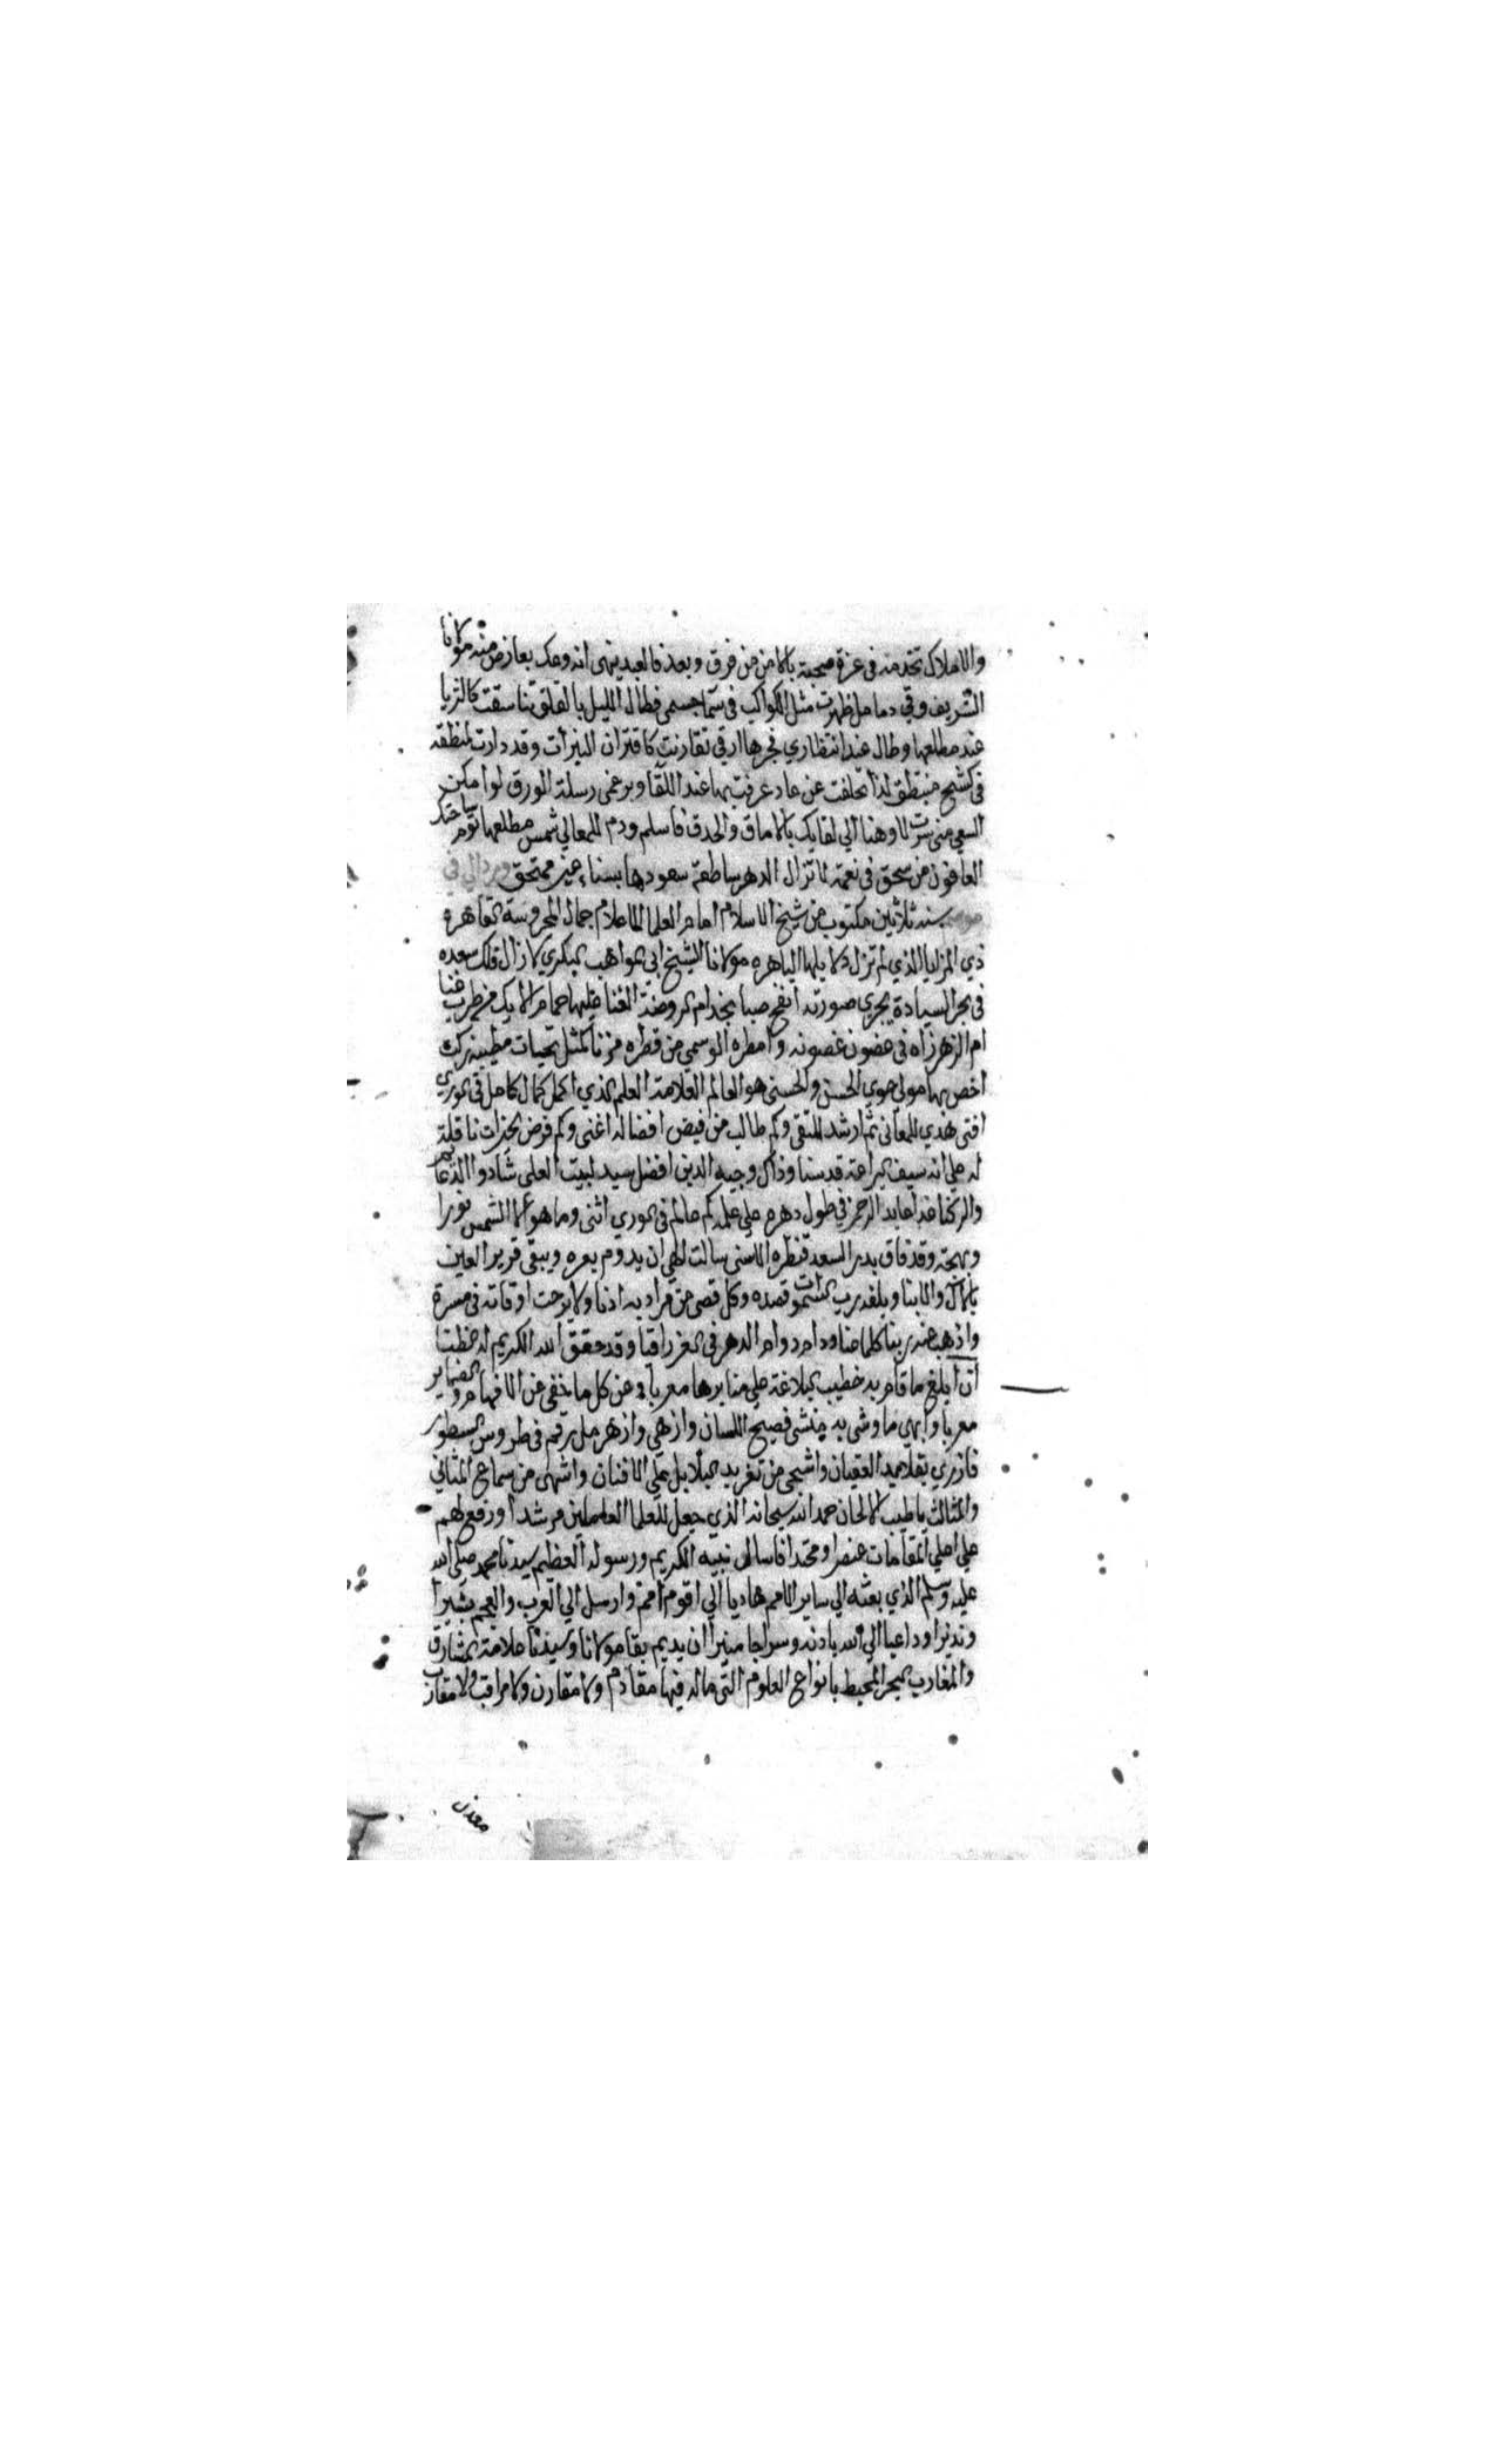 والاملاك تخدمه في عزة صحبة بالامن من فرق وبعد فالعبد ينهى انه وعك بعارض منه مولانا
الشريف وقي دمامل ظهرت مثل الكواكب في سما جسمي فطال الليل بالقلق تناسقت كالثريا
عند مطلعها وطال عند انتظاري فجرها ارقي تقارنت كاقتران النيرات وقد دارت كمنطقة
في كشح منتطق لذا تخلفت عن عاد عرفت بها عند اللقا وبرغمي رسلة الورق لو امكن
السعي مني سرت لا وهنا الي لقايك بالاماق والحدق فاسلم ودم للمعالي شمس مطلعها توم ساحتك
العافون من سحق في نعمة لا تزال الدهر ساطعة سعودها بسناء غير ممتحق وورد الي في
سنة ثلاثين مكتوب من شيخ الاسلام امام العلما الاعلام جمال المحروسة القاهرة
ذي المزايا الذي لم تزل دلايلها الباهره مولانا الشيخ ابي المواهب البكري لا زال فلك سعده
في بحر السيادة يجري صورته انفح صبا بخدام الروضة الغنا عليها حمام الايك من طرب غنا
ام الزهر زاه في غضون غصونه وامطره الوسمي من قطره مزنا كمثل تحيات مطيبة زكت
اخص بها مولى حوي الحسن والحسنى هو العالم العلامة العلم الذي اكمل كمال كامل في الوري
افتى هدي للمعاني ثم ارشد للتقى وكم طالب من فيض افضاله اغنى وكم فرض لخيرات نافلة
له علي انه سيف البراعة قد سنا وذاك وجيه الدين افضل سيد لبيت العلى شادوا الدعايم
والركنا غدا عابد الرحمن في طول دهره علي علمه كم عالم في الوري اثنى وما هو الا الشمس نورا
وبهجة وقد فاق بدر السعد منظره الاسنى سالت الهي ان يدوم بعزه ويبقى قرير العين
بالال والابنا ويبلغه رب السموات قصده وكل قصي من مراد به ادنا ولا برحت اوقاته في مسرة
واذهب عنه ربنا كلما عنا ودام دوام الدهر في العز راقيا وقد حقق الله الكريم له ظنا
ان ابلغ ما قام به خطيب البلاغة علي منابرها معربا وعن كل ما خفي عن الافهام والضماير
معربا وابهي ما وشي به منشي فصيح اللسان وازهي وازهر مل برقم في طروس السطور
فازري بقلايد العقيان واشجى من تغريد البلابل علي الافنان واشهى من سماع المثاني
والمثالث باطيب الالحان حمد الله سبحانه الذي جعل للعلما العاملين مرشدا ورفع لهم
علي اعلي المقامات عنصرا ومحتدا فاسال نبيه الكريم ورسوله العظيم سيدنا محمد صلي الله
عليه وسلم الذي بعثه الي ساير الامم هاديا الي اقوم امم وارسل الي العرب والعجم بشيرا
ونذيرا وداعيا الي الله باذنه وسراجا منيرا ان يديم بقا مولانا وسيدنا علامة المشارق
والمغارب البحر المحيط بانواع العلوم التي ماله فيها مقادم ولا مقارن ولا مراقب ولا مقارب
معدن